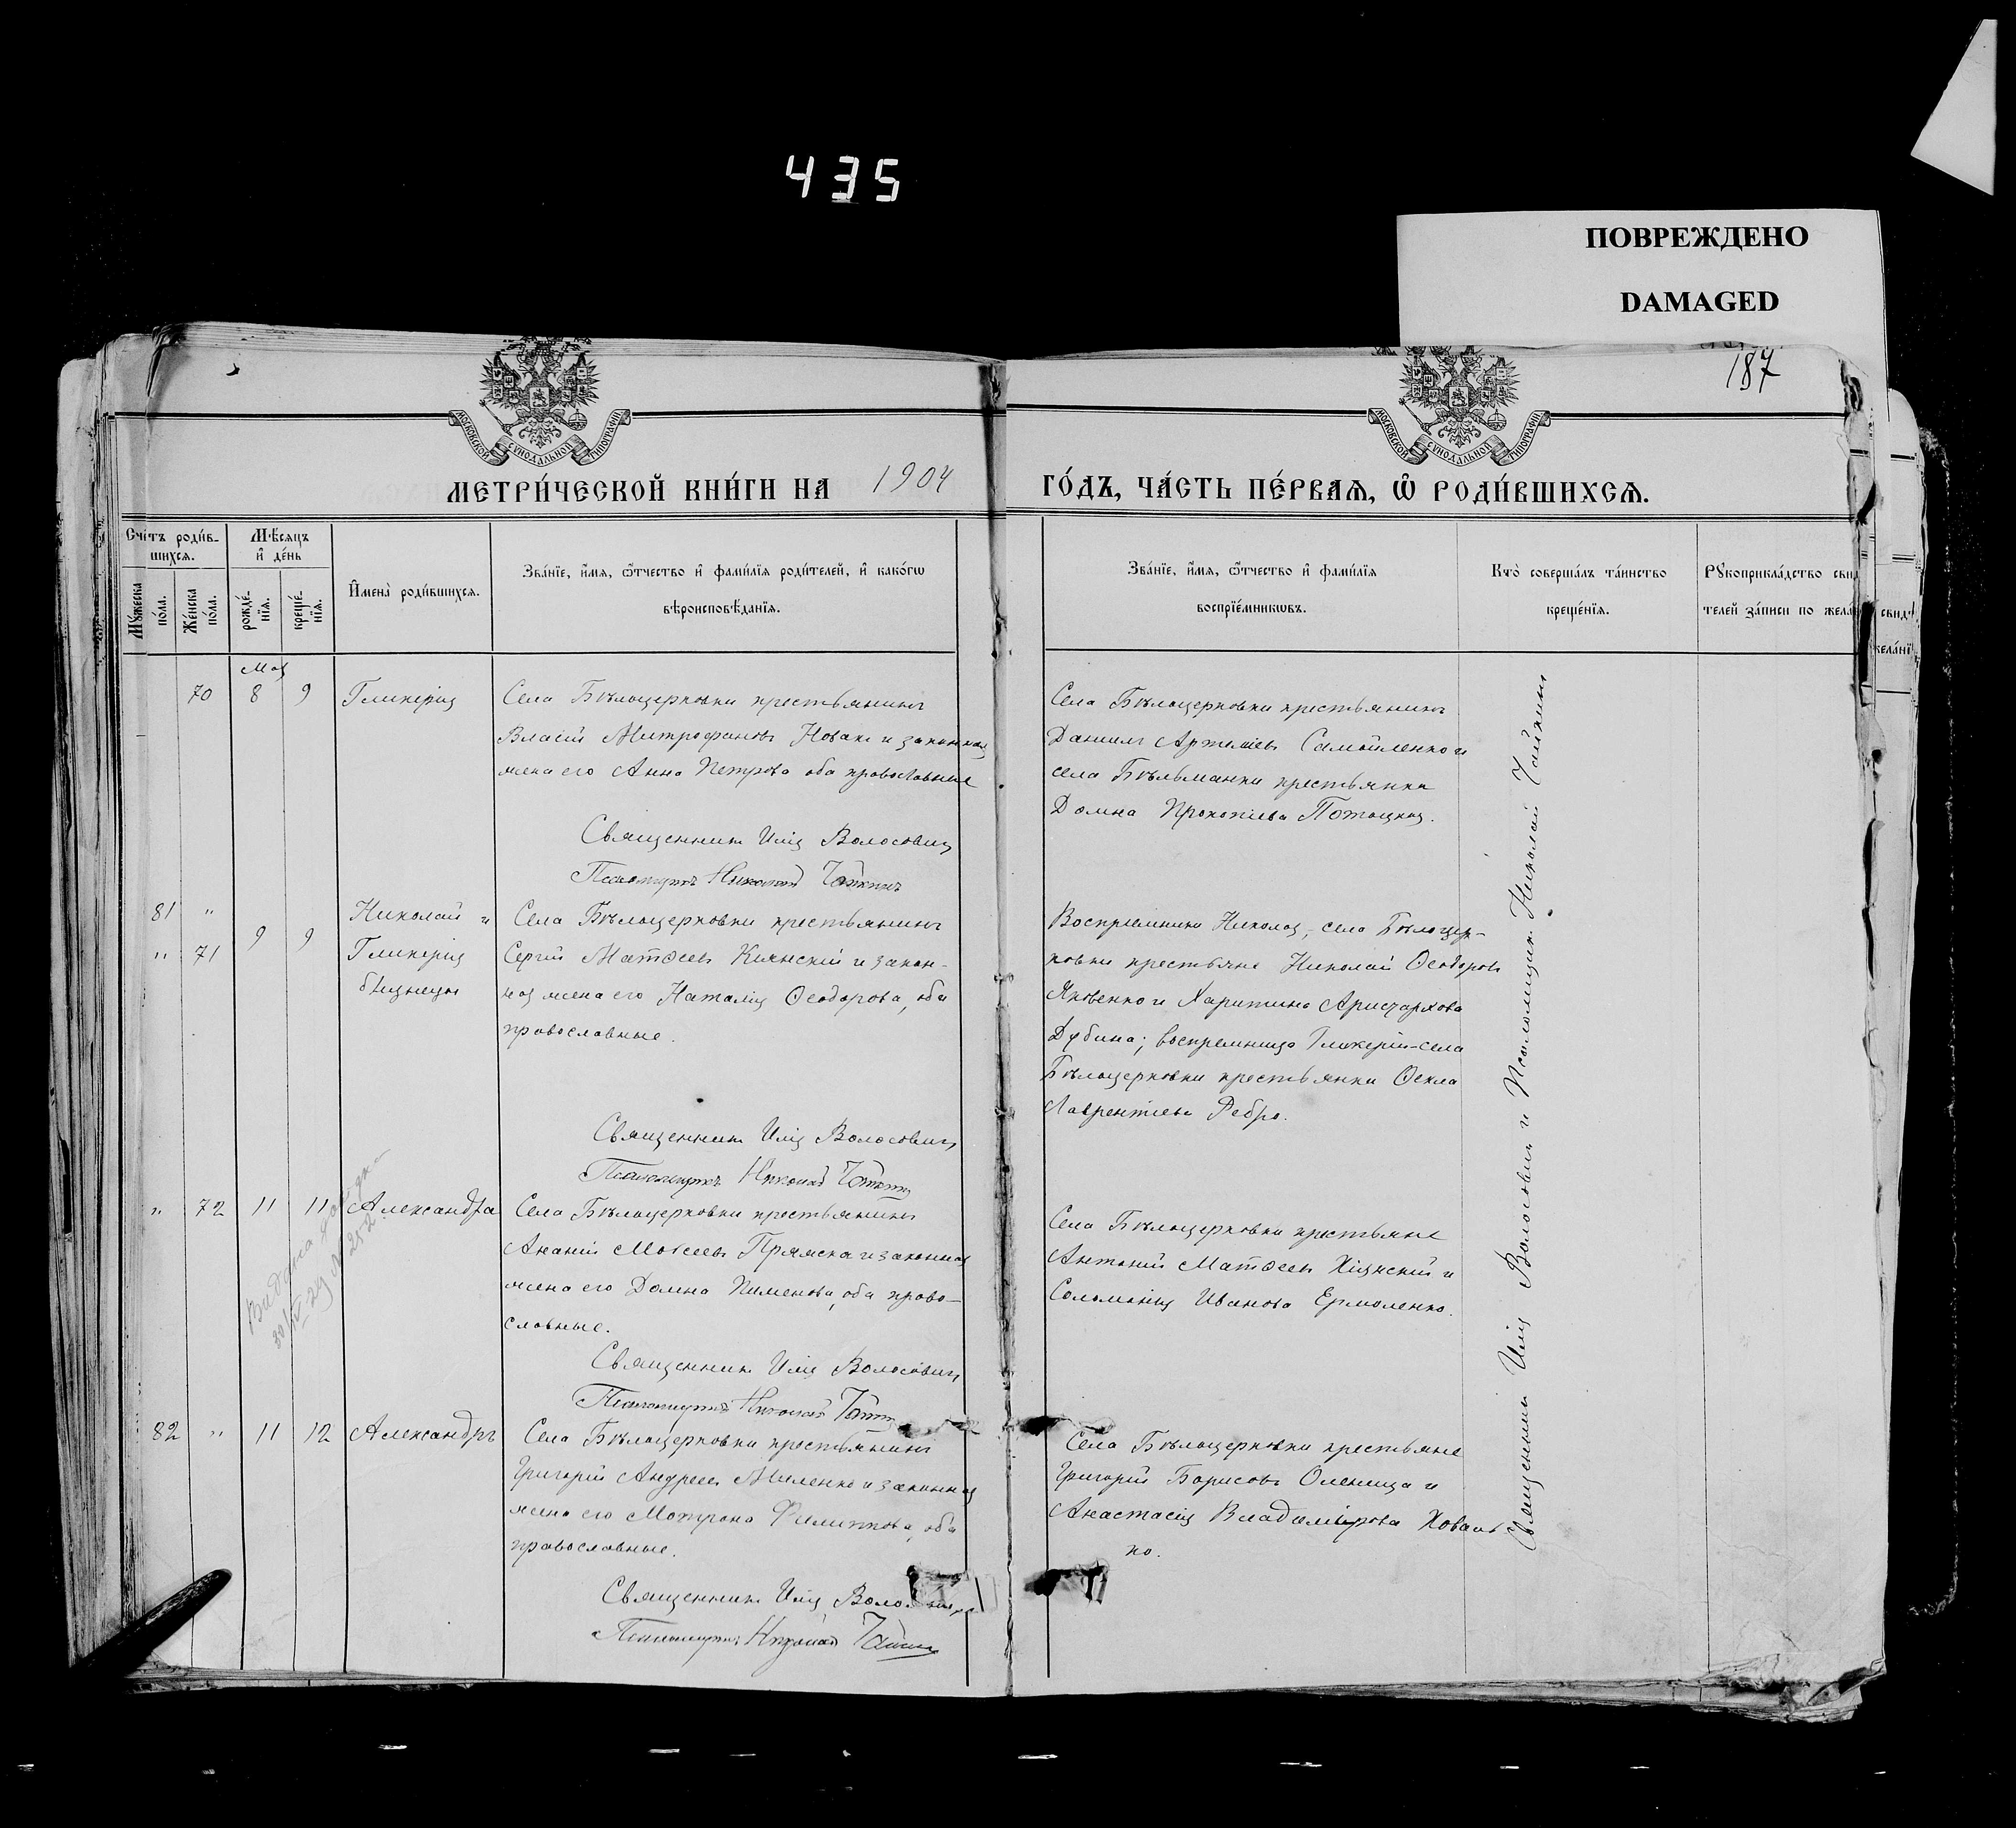 435
ПОВРЕЖДЕНО
DAMAGED
187
МОСКОВСКОЙ СѴНОДАЛЬНОЙ ТИПОГРАФІИ
МОСКОВСКОЙ СѴНОДАЛЬНОЙ ТИПОГРАФІИ
МЕТРИ́ЧЕСКОЙ КНИ́ГИ НА 1904
ГО́ДЪ, ЧА́СТЬ ПЕ́РВАѦ, Ѡ҆ РОДИ́ВШИХСѦ.
Сче́тъ роди́в-
шихсѧ.
Мѣ́сѧцъ
и҆ де́нь
Мꙋ́жеска
по́ла.
Же́нска
по́ла.
рожде́-
нїѧ.
креще́-
нїѧ.
И҆мена̀ роди́вшихсѧ.
Зва́нїе, и҆́мѧ, ѻ҆́тчество и҆ фами́лїѧ роди́телей, и҆ како́гѡ
вѣроисповѣ́данїѧ.
Зва́нїе, и҆́мѧ, ѻ҆́тчество и҆ фами́лїѧ
воспрїе́мникѡвъ.
Кто̀ соверша́лъ та́инство
креще́нїѧ.
Рꙋкоприкла́дство свид
телей за́писи по жела
свид
жела́нї
Мая
70 8 9 Гликерія
Села Бѣлоцерковки крестьянинъ
Власій Митрофановъ Новакъ и законная
жена его Анна Петрова оба православные
Священникъ Илія Волосовичъ
Псаломщикъ Николай Чайкинъ
Села Бѣлоцерковки крестьянинъ
Даніилъ Артеміевъ Самойленко и
села Бѣльманки крестьянка
Домна Прокопіева Потоцкая.
81 " Николай и
" 71 9 9 Гликерія
близнецы
Села Бѣлоцерковки крестьянинъ
Сергій Матѳеевъ Кіянскій и закон-
ная жена его Наталія Ѳеодорова, оба
православные.
Священникъ Илія Волосовичъ
Псаломщикъ Николай Чайкинъ
Воспріемники Николая, села Бѣлоцер-
ковки крестьяне Николай Ѳеодоровъ
Яковенко и Харитина Аристархова
Дубина; воспріемница Гликеріи-села
Бѣлоцерковки крестьянка Ѳекла
Лаврентіева Ребро.
" 72 11 11 Александра
Села Бѣлоцерковки крестьянинъ
Ананій Моисеевъ Пряжка и законная
жена его Домна Пименова, оба право-
славные.
Священникъ Илія Волосовичъ
Псаломщикъ Николай Чайкинъ
Села Бѣлоцерковки крестьяне
Антоній Матѳеевъ Кіянскій и
Соломонія Иванова Ермоленко.
Видана
30/IV-29 № 252
82 " 11 12 Александръ
Села Бѣлоцерковки крестьянинъ
Григорій Андреевъ Миленко и законная
жена его Мотрона Филиппова, оба
православные.
Священникъ Илія Волосовичъ
Псаломщикъ Николай Чайкинъ
Села Бѣлоцерковки крестьяне
Григорій Борисовъ Оленица и
Анастасія Владимірова Коваль
ко.
Священникъ Илія Волосовичъ и Псаломщикъ Николай Чайкинъ